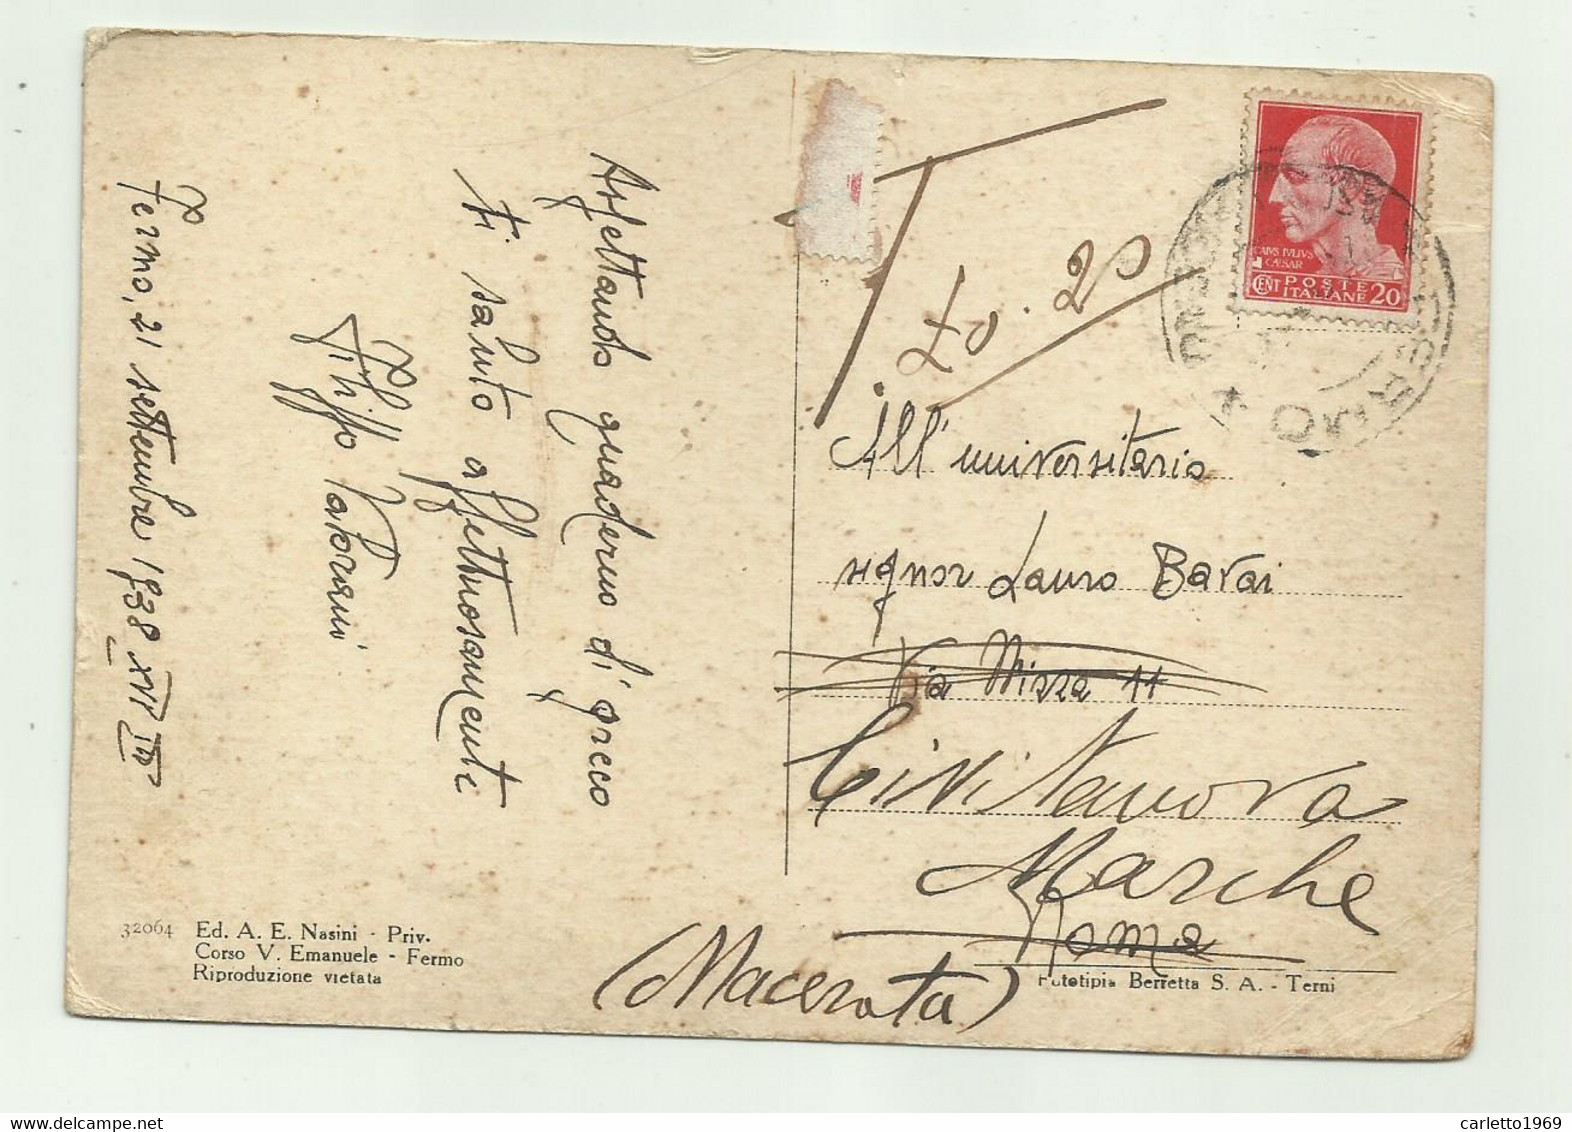 Fermo, 21 settembre 1938 XVI
Aspettando quaderno di greco
ti saluto affettuosamente
Filippo
T
20
CAIVS IVLIVS
CAESAR
CENT POSTE
ITALIANE 20
All' universitario
signor Lauro Bavai
Via Nizza 11
Civitanova
Marche
Roma
(Macerata)
32064 Ed. A. E. Nasini - Priv.
Corso V. Emanuele - Fermo
Riproduzione vietata
Fototipia Berretta S. A. - Terni
carletto1969